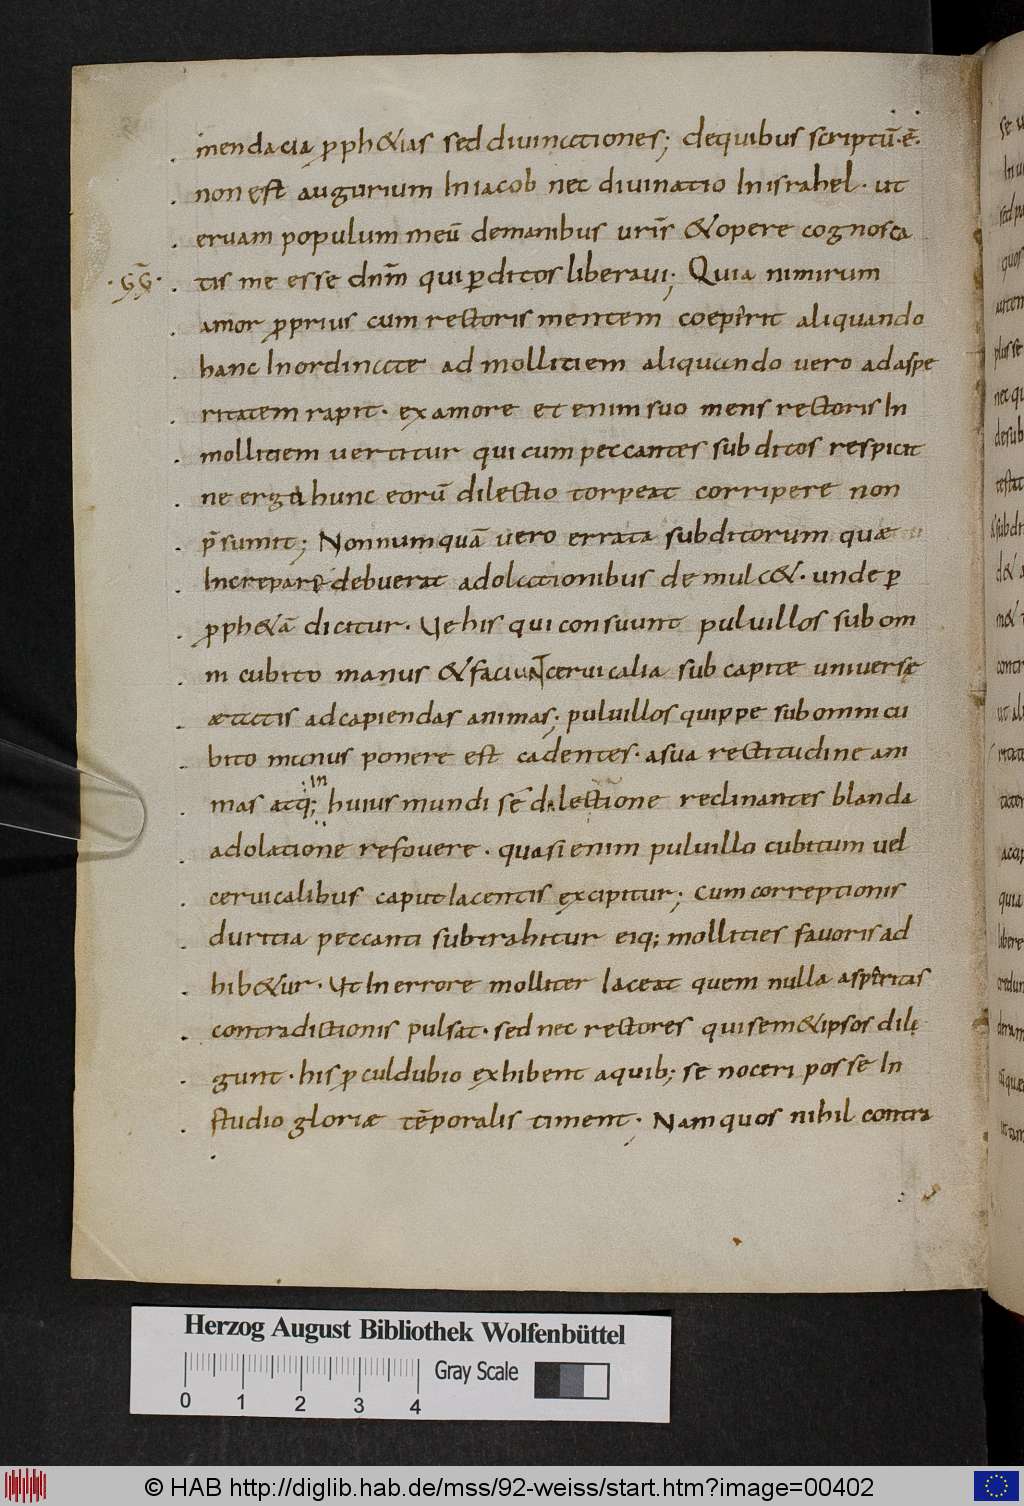 mendacia pphetias sed diuinationes; dequibus scriptū·ē·
non est augurium Iniacob nec diuinatio Inisrahel· ut
eruam populum meū demanibus uris̄ &opere cognosca
tis me esse dnm̄ qui pditos liberaui; Quia nimirum
amor pprius cum rectoris mentem coeperit aliquando
hanc Inordinate ad mollitiem aliquando vero adaspe
ritatem rapit· ex amore et enim suo mens rectoris In
mollitiem vertitur qui cum peccantes subditos respicit
ne ergo hunc eorū dilectio torpeat corripere non
p̄sumit; Nonnumquā vero errata subditorum quae
Increpare debuerat adolationibus demulc&· unde p
pph&ā dicitur· Ve his qui consuunt puluillos sub om
ni cubito manus & faciunt ceruicalia sub capite universę
aetatis ad capiendas animas; puluillos quippe sub omni cu
bito manus ponere est cadentes· asua rectitudine ani
in
mas atq; huius mundi se dilectione reclinantes blanda
adolatione refovere· quasi enim puluillo cubitum uel
ceruicalibus caput Iacentis excipitur; cum correptionis
duritia peccanti subtrahitur eiq; mollities favoris ad
hib&ur· Ut In errore molliter Iaceat quem nulla asperitas
contradictionis pulsat· sed nec rectores qui sem&ipsos dilę
gunt· his pculdubio exhibent aquib; se noceri posse In
studio gloriae tēporalis timent· Nam quos nihil contra
Herzog August Bibliothek Wolfenbüttel
Gray Scale
0 1 2 3 4
© HAB http://diglib.hab.de/mss/92-weiss/start.htm?image=00402